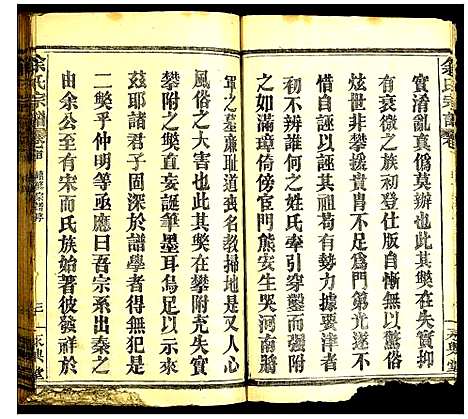 余氏宗譜
實淆亂真僞莫辦也此其獘在失實抑
有衰微之族初登仕版自慚無以驚俗
炫世非攀援貴冑不足爲門第光遂不
惜自誣以誣其祖苟有勢力據要津者
初不辨誰何之姓氏牽引穿鑿而强附
之如滿璋倚傍宦門熊安生哭河南將
軍之墓廉耻道喪名教掃地是又人心
風俗之大害也此其獘在攀附夫失實
攀附之獘直妄誕筆墨耳烏足以示來
茲耶諸君子固深於譜學者得無犯此
二獘乎仲明等亟應曰吾宗系出秦之
由余公至有宋而氏族始著彼發祥於
余氏宗譜
卷首
三
永興堂
永興堂